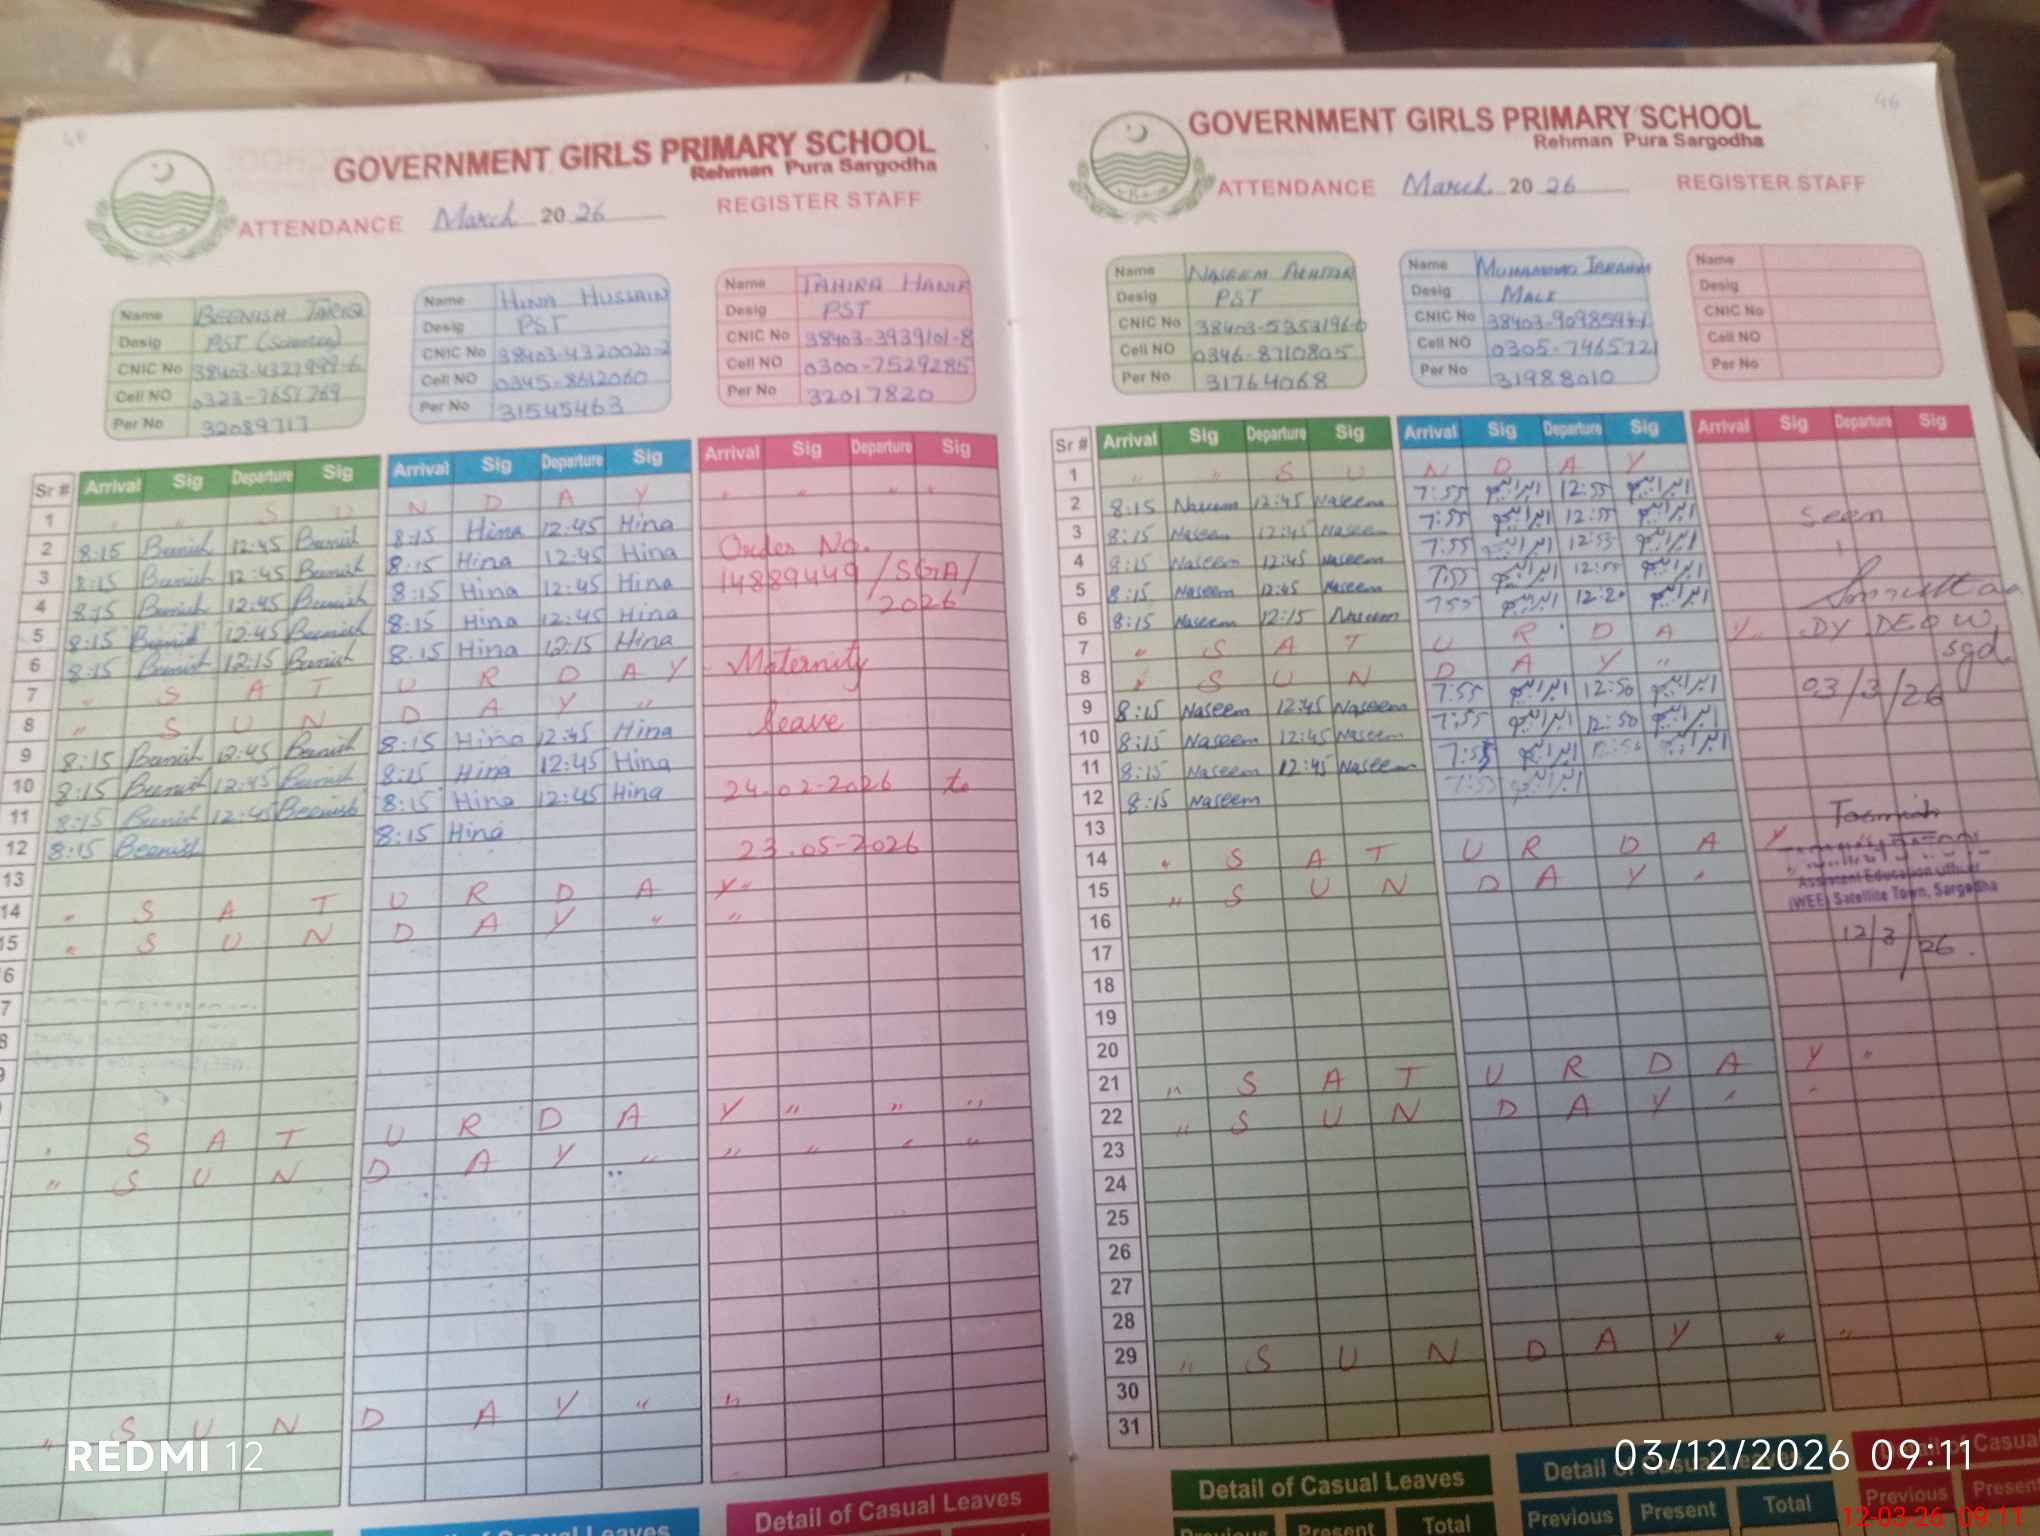 GOVERNMENT GIRLS PRIMARY SCHOOL
Rehman Pura Sargodha
ATTENDANCE March 2026 REGISTER STAFF
Name BEENISH TARIQ
Desig PST (Science)
CNIC No
Cell NO
Per No 32089717
Name HINA HUSSAIN
Desig PST
CNIC No 38403-4320020-2
Cell NO 0345-8612060
Per No 31545463
Name TAHIRA HANIF
Desig PST
CNIC No 38403-3939101-8
Cell NO 0300-7529285
Per No 32017820
Sr # Arrival Sig Departure Sig Arrival Sig Departure Sig Arrival Sig Departure Sig
1 " " S U N D A Y " " " "
2 8:15 Beenish 12:45 Beenish 8:15 Hina 12:45 Hina
3 8:15 Beenish 12:45 Beenish 8:15 Hina 12:45 Hina Order No.
4 8:15 Beenish 12:45 Beenish 8:15 Hina 12:45 Hina 14889449/SGA/
5 8:15 Beenish 12:45 Beenish 8:15 Hina 12:45 Hina 2026
6 8:15 Beenish 12:15 Beenish 8:15 Hina 12:15 Hina
7 " S A T U R D A Y Maternity
8 " S U N D A Y "
9 8:15 Beenish 12:45 Beenish 8:15 Hina 12:45 Hina leave
10 8:15 Beenish 12:45 Beenish 8:15 Hina 12:45 Hina
11 8:15 Beenish 12:45 Beenish 8:15 Hina 12:45 Hina 24-02-2026 to
12 8:15 Beenish 8:15 Hina
13 23-05-2026
14 " S A T U R D A Y "
15 " S U N D A Y " "
6
7
8
9
" S A T U R D A Y " " "
" S U N D A Y " " " " "
" S U N D A Y " "
Detail of Casual Leaves
Detail of Casual Leaves
GOVERNMENT GIRLS PRIMARY SCHOOL
Rehman Pura Sargodha
ATTENDANCE March 2026 REGISTER STAFF
Name NASEEM AKHTAR
Desig PST
CNIC No 38403-5353196-0
Cell NO 0346-8710805
Per No 31764068
Name MUHAMMAD IBRAHIM
Desig MALI
CNIC No
Cell NO 0305-7465721
Per No 31988010
Name
Desig
CNIC No
Cell NO
Per No
Sr # Arrival Sig Departure Sig Arrival Sig Departure Sig Arrival Sig Departure Sig
1 " " S U N D A Y
2 8:15 Naseem 12:45 Naseem 7:55 ابراہیم 12:55 ابراہیم
3 8:15 Naseem 12:45 Naseem 7:55 ابراہیم 12:55 ابراہیم Seen
4 8:15 Naseem 12:45 Naseem 7:55 ابراہیم 12:55 ابراہیم
5 8:15 Naseem 12:45 Naseem 7:55 ابراہیم 12:55 ابراہیم
6 8:15 Naseem 12:15 Naseem 7:55 ابراہیم 12:20 ابراہیم
7 " S A T U R D A Y " DY DEO W
8 " S U N D A Y " sgd.
9 8:15 Naseem 12:45 Naseem 7:55 ابراہیم 12:50 ابراہیم 03/3/26
10 8:15 Naseem 12:45 Naseem 7:55 ابراہیم 12:50 ابراہیم
11 8:15 Naseem 12:45 Naseem 7:55 ابراہیم 12:50 ابراہیم
12 8:15 Naseem 7:55 ابراہیم
13
14 " S A T U R D A Y
15 " S U N D A Y "
Assistant Education Officer
(WEE) Satellite Town, Sargodha
12/3/26.
16
17
18
19
20
21 " S A T U R D A Y "
22 " S U N D A Y " "
23
24
25
26
27
28
29 " S U N D A Y " "
30
31
Detail of Casual Leaves
Previous Present Total
Detail of Casual Leaves
Previous Present Total
Detail of Casual
Previous Present
REDMI 12
03/12/2026 09:11
12-03-26 09:11